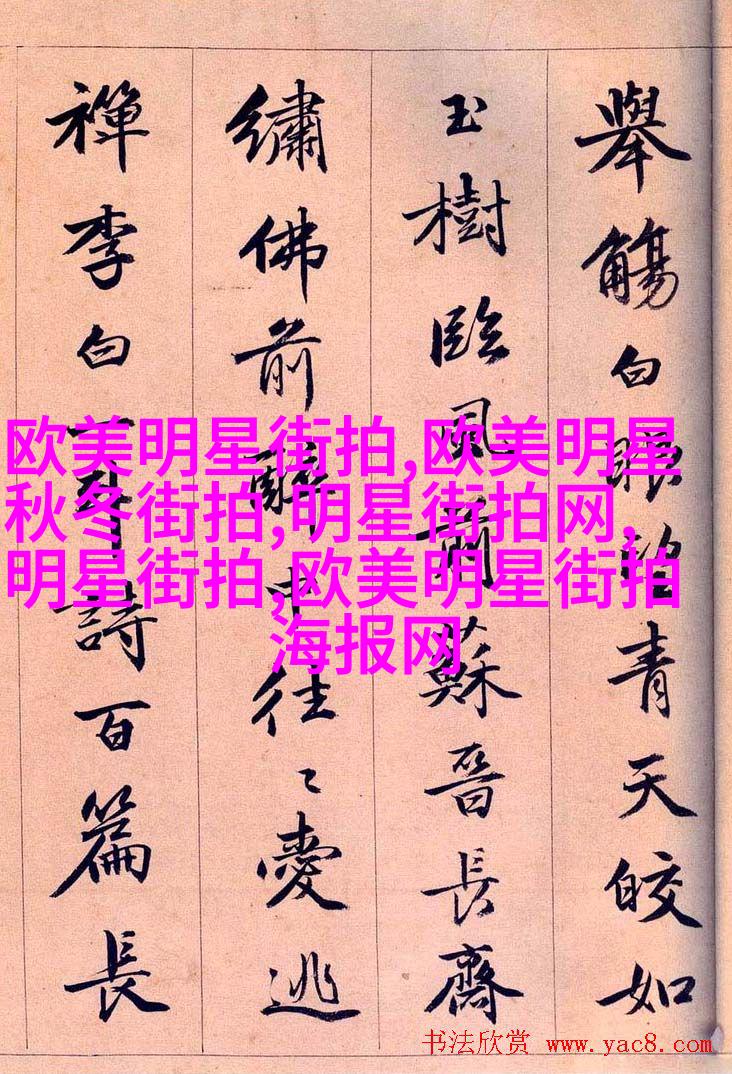 舉觴白眼望青天皎如
玉樹臨風前蘇晉長齋
繡佛前醉中往〻愛逃
禪李白一斗詩百篇長
欧美明星街拍,欧美明星
秋冬街拍,明星街拍网,
明星街拍,欧美明星街拍
海报网
书法欣赏 www.yac8.com